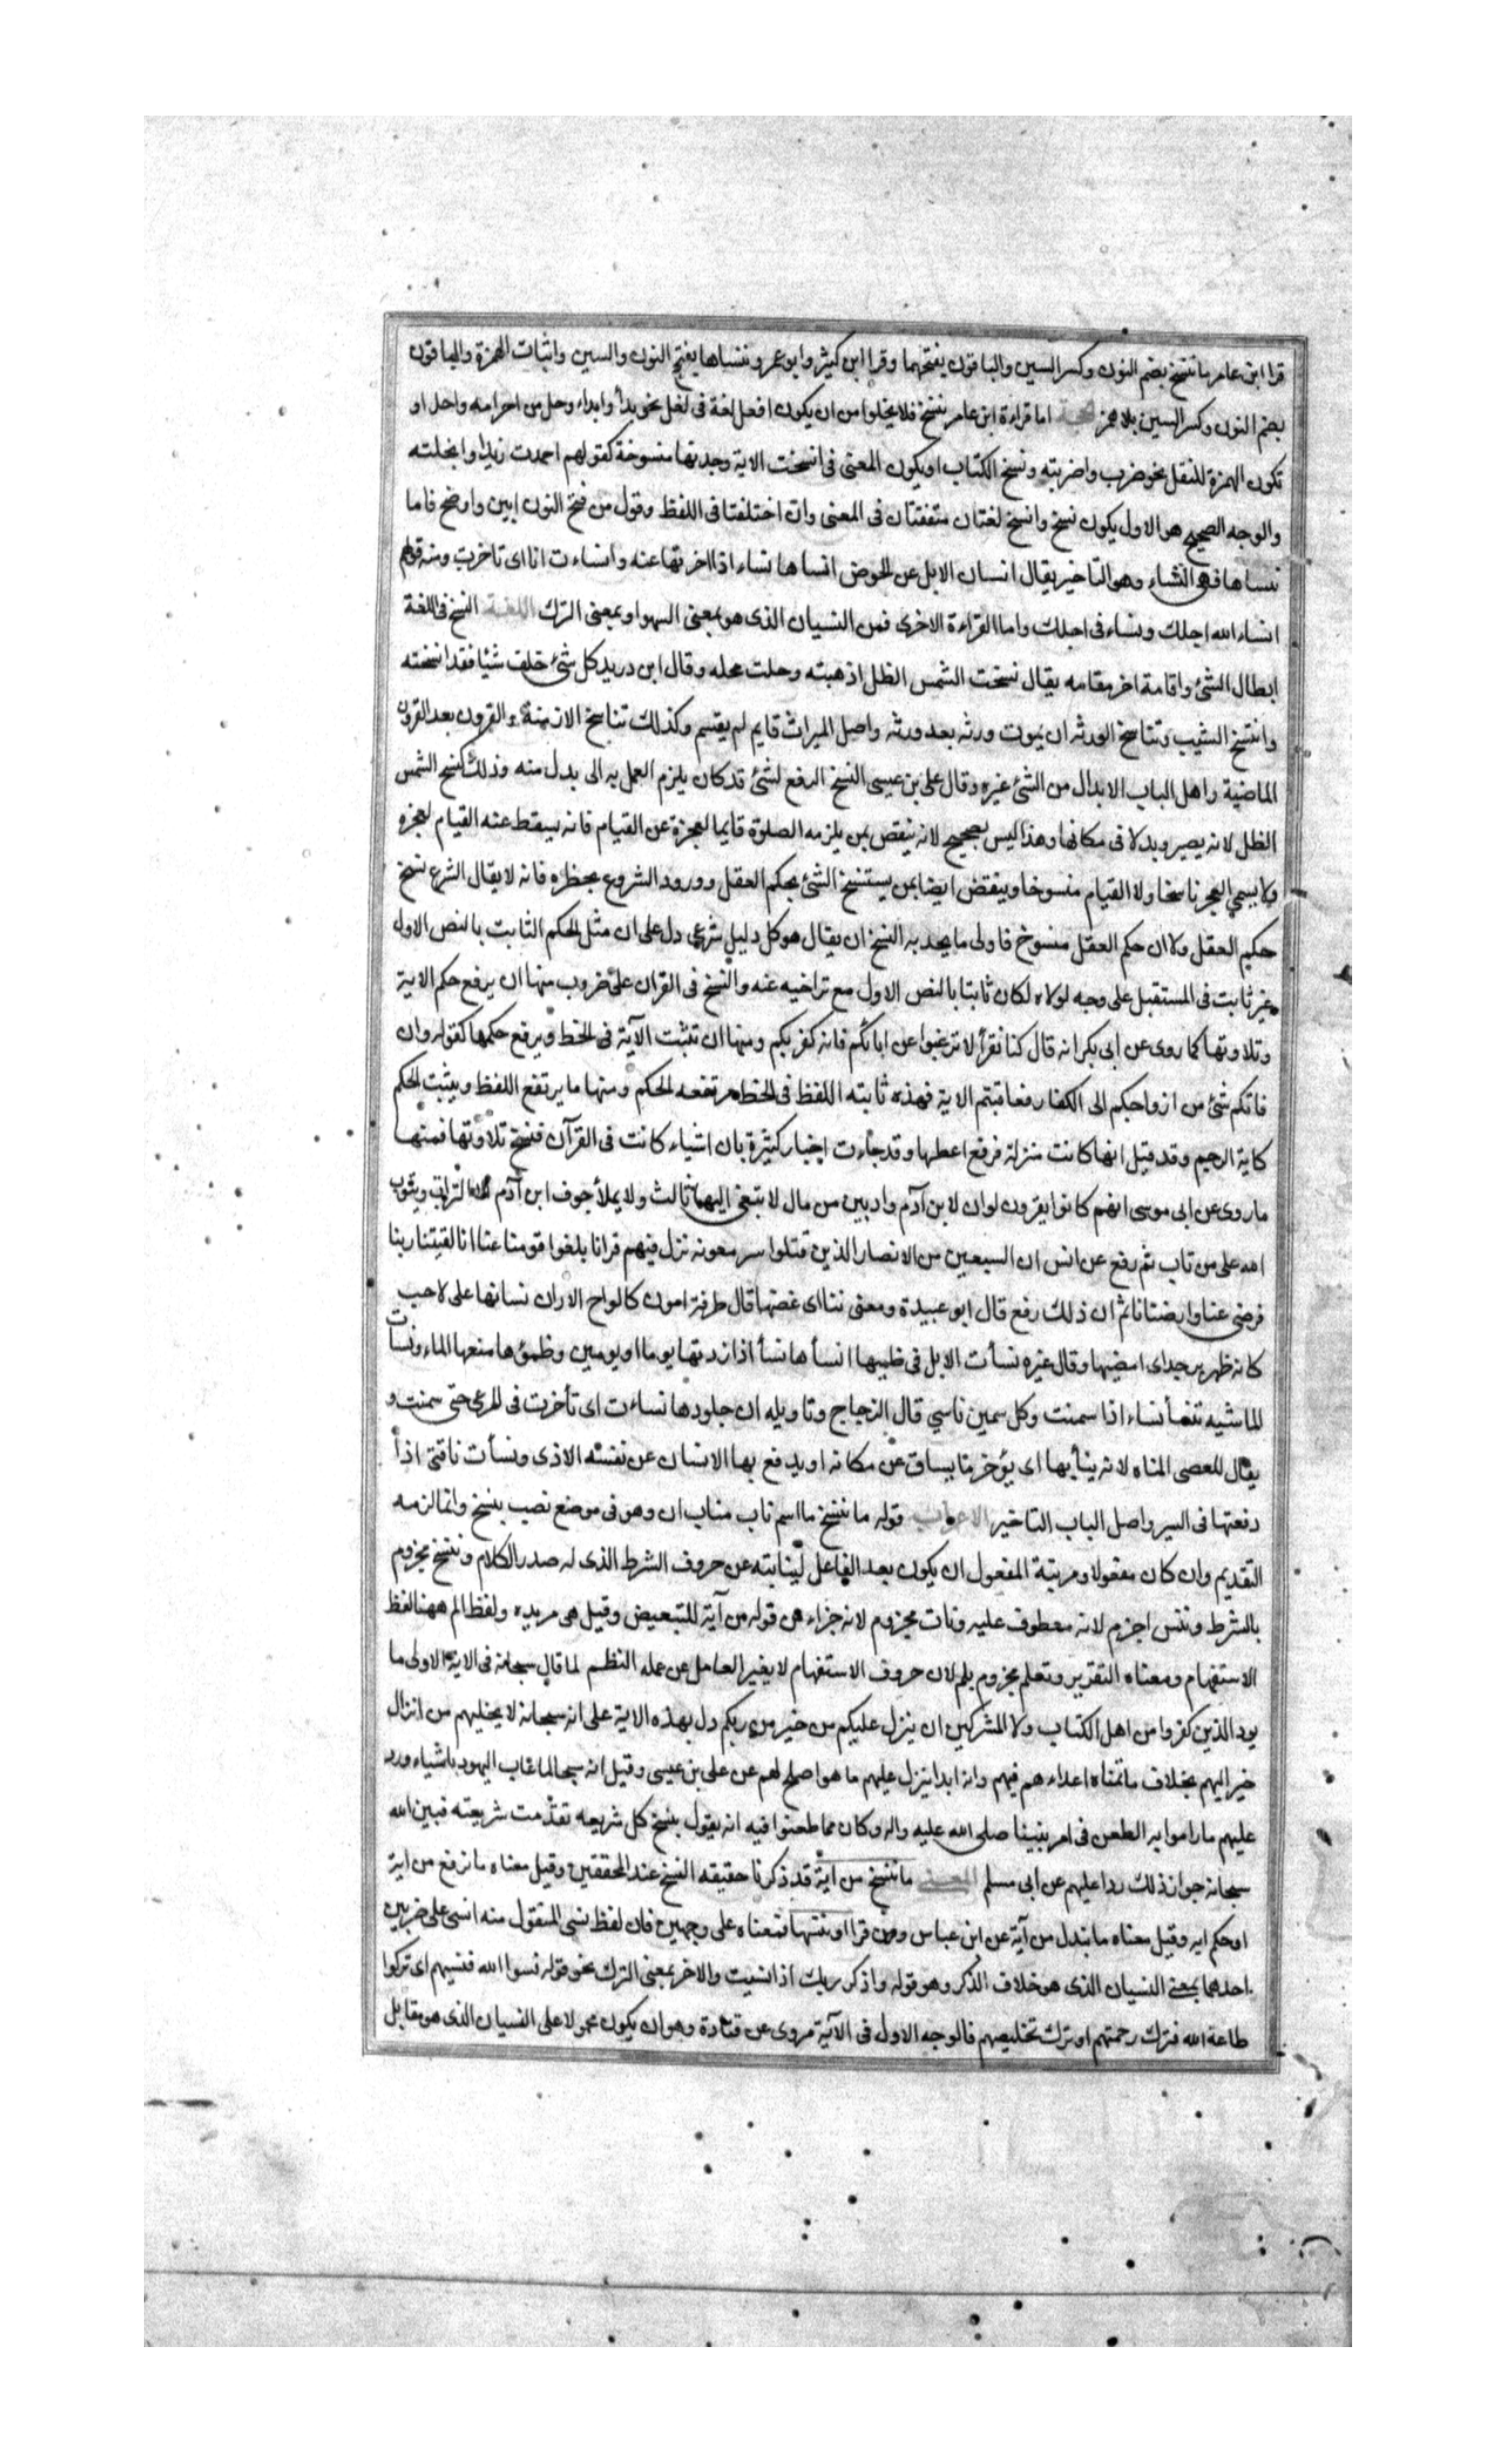 قرا ابن عامر ما ننسخ بضم النون وكسر السين والباقون بفتحهما وقرا ابن كثير وابو عمرو ننساها بفتح النون والسين واثبات الهمزة والباقون
بضم النون وكسر السين بلا همز الحجة اما قراءة ابن عامر ننسخ فلا يخلوا من ان يكون افعل لغة فى فعل نحو بدأ وابداء وحل من احرامه واحل او
تكون الهمزة للنقل نحو ضرب واضربته ونسخ الكتاب او يكون المعنى فى انسخت الاية وجدتها منسوخة كقولهم احمدت زيدا وابخلته
والوجه الصحيح هو الاول يكون نسخ وانسخ لغتان متفقتان فى المعنى وان اختلفتا فى اللفظ وقول من فتح النون ابين واوضح فاما
ننساها فهى النساء وهو التاخير يقال انسان الابل عن الحوض انساها نساء اذا اخرتها عنه وانساءت انا اى تاخرت ومنه قولهم
انساء الله اجلك ونساء فى اجلك واما القراءة الاخرى فمن النسيان الذى هو بمعنى السهو او بمعنى الترك اللغة النسخ فى اللغة
ابطال الشئ واقامة اخر مقامه يقال نسخت الشمس الظل اذهبته وحلت محله وقال ابن دريد كل شئ خلف شيئا فقد انسخته
وانتسخ الشيب وتناسخ الورثه ان يموت ورثه بعد ورثه واصل الميراث قايم لم يقسم وكذلك تناسخ الازمنة والقرون بعد القرون
الماضية واهل الباب الابدال من الشئ غيره وقال على بن عيسى النسخ الرفع لشئ قد كان يلزم العمل به الى بدل منه وذلك كنسخ الشمس
الظل لانه يصير وبدلا فى مكانها وهذا ليس بصحيح لانه ينقض بمن يلزمه الصلوة قايما لعجزة عن القيام فانه يسقط عنه القيام لعجزه
ولا يسمى العجز ناسخا ولا القيام منسوخا وينقض ايضا بمن يستنسخ الشئ بحكم العقل وورود الشروع بحظره فانه لا يقال الشرع نسخ
حكم العقل ولا ان حكم العقل منسوخ فاولى ما يحد به النسخ ان يقال هو كل دليل شرعى دل على ان مثل الحكم الثابت بالنص الاول
غير ثابت فى المستقبل على وجه لولاه لكان ثابتا بالنص الاول مع تراخيه عنه والنسخ فى القران على ضروب منها ان يرفع حكم الاية
وتلاوتها كما روى عن ابى بكر انه قال كنا نقرأ لا ترغبوا عن ابائكم فانه كفر بكم ومنها ان تثبت الآية فى الخط ويرفع حكمها كقوله وان
فاتكم شئ من ازواجكم الى الكفار فعاقبتم الاية فهذه ثابته اللفظ فى الخط مرتفعه الحكم ومنها ما يرتفع اللفظ ويثبت الحكم
كاية الرجم وقد قيل انها كانت منزلة فرفع اعطها وقد جاءت اخبار كثيرة بان اشياء كانت فى القرآن فنسخ تلاوتها فمنها
ما روى عن ابى موسى انهم كانوا يقرون لو ان لابن آدم واديين من مال لابتغى اليهما ثالث ولا يملأ جوف ابن آدم الا التراب ويتوب
الله على من تاب ثم رفع عن انس ان السبعين من الانصار الذين قتلوا ببير معونه نزل فيهم قرانا بلغوا قومنا عنا انا لقيتنا ربنا
فرضى عنا وارضتانا ثم ان ذلك رفع قال ابو عبيدة ومعنى ننسا اى غضتها قال طرفة امون كالواح الاران نسانها على لاحب
كانه ظهر برجد اى امضيها وقال غيره نسأت الابل فى ظميها انسأها نسأ اذا زدتها يوما او يومين وظمؤها منعها الماء ونسأت
الماشيه تنسأ نساء اذا سمنت وكل سمين ناسي قال الزجاج وتاويله ان جلودها نساءت اى تأخرت فى المرعى حتى سمنت و
يقال للعصى المناه لانه ينسأ بها اى يؤخر ما يساق عن مكانه او يدفع بها الانسان عن نفسه الاذى ونسأت ناقتى اذا
دفعتها فى السير واصل الباب التاخير الاعراب قوله ما ننسخ ما اسم ناب مناب ان وهو فى موضع نصب بننسخ وانما لزمه
التقديم وان كان مفعولا ومرتبة المفعول ان يكون بعد الفاعل لنيابته عن حروف الشرط الذى له صدر الكلام وننسخ مجزوم
بالشرط وننس اجزم لانه معطوف عليه ونات مجزوم لانه جزاء من قوله من آية للتبعيض وقيل هى مزيده ولفظ الم ههنا لفظ
الاستفهام ومعناه التقرير وتعلم مجزوم بلم لان حروف الاستفهام لا يغير العامل عن عمله النظم لما قال سبحانه فى الاية الاولى ما
يود الذين كفروا من اهل الكتاب ولا المشركين ان ينزل عليكم من خير من ربكم دل بهذه الاية على انه سبحانه لا يخليهم من انزال
خير اليهم بخلاف ما تمناه اعداءهم فيهم وانه ابدا ينزل عليهم ما هو اصلح لهم عن على بن عيسى وقيل انه سبحا لما عاب اليهود باشياء ورد
عليهم ما راموا به الطعن فى امر نبينا صلى الله عليه واله وكان مما طعنوا فيه انه يقول بنسخ كل شريعه تقدمت شريعته فبين الله
سبحانه جواز ذلك ردا عليهم عن ابى مسلم المعنى ما ننسخ من آية قد ذكرنا حقيقه النسخ عند المحققين وقيل معناه ما نرفع من اية
او حكم ايه وقيل معناه ما نبدل من آية عن ابن عباس ومن قرا او ننسها فمعناه على وجهين فان لفظ نسى المنقول منه انسى على ضربين
احدهما بمعنى النسيان الذى هو خلاف الذكر وهو قوله واذكر ربك اذا نسيت والاخر بمعنى الترك نحو قوله نسوا الله فنسيهم اى تركوا
طاعة الله فترك رحمتهم او ترك تخليصهم فالوجه الاول فى الآية مروى عن قتادة وهو ان يكون محمولا على النسيان الذى هو مقابل